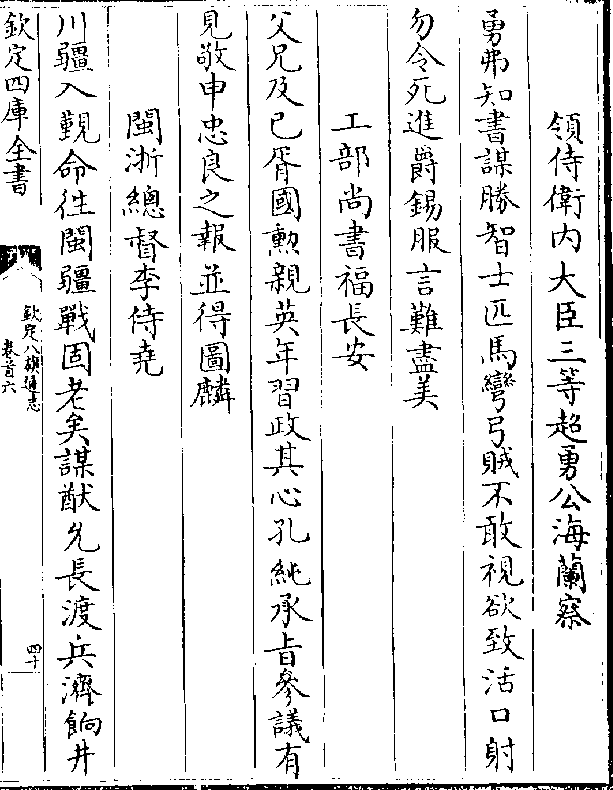 領侍衛内大臣三等超勇公海蘭察
勇弗知書謀勝智士匹馬彎弓賊不敢視欲致活口射
勿令死進爵錫服言難盡美
工部尚書福長安
父兄及已胥國勲親英年習政其心孔純承旨參議有
見敬申忠良之報並得圖麟
閩浙總督李侍堯
川疆入覲命往閩疆戰固老矣謀猷允長渡兵濟餉井
欽定四庫全書
欽定八旗通志
卷首六
四十